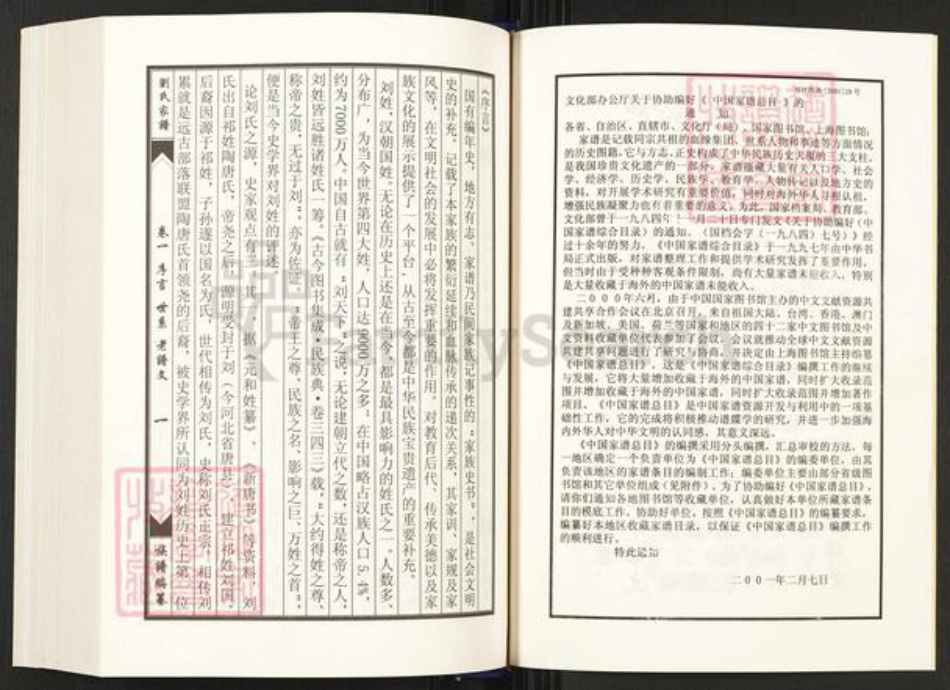 文化部办公厅关于协助编好《中国家谱总目》的
通 知
各省、自治区、直辖市、文化厅(局),国家图书馆、上海图书馆:
家谱是记载同宗共祖的血缘集团、世系人物和事迹等方面情况
的历史图籍,它与方志、正史构成了中华民族历史大厦的三大支柱,
是我国珍贵文化遗产的一部分。家谱蕴藏大量有关人口学、社会
学、经济学、历史学、民族学、教育学、人物传记以及地方史的
资料,对开展学术研究有重要价值,同时对海外华人寻根认祖,
增强民族凝聚力也有着重要的意义。为此,国家档案局、教育部、
文化部曾于一九八四年十一月二十日专门发文《关于协助编好〈中
国家谱综合目录〉的通知。(国档会字(一九八四)七号)》经
过十余年的努力,《中国家谱综合目录》于一九九七年由中华书
局正式出版,对家谱整理工作和提供学术研究发挥了重要作用。
但当时由于受种种客观条件限制,尚有大量家谱未能收入,特别
是大量收藏于海外的中国家谱未能收入。
二000年六月,由于中国国家图书馆主办的中文文献资源共
建共享合作会议在北京召开,来自祖国大陆、台湾、香港、澳门
及新加坡、美国、荷兰等国家和地区的四十二家中文图书馆及中
文资料收藏单位代表参加了会议。会议就推动全球中文文献资源
共建共享问题进行了研究与协商,并决定由上海图书馆主持编纂
《中国家谱总目》。这是《中国家谱综合目录》编撰工作的继续
与发展,它将大量增加收藏于海外的中国家谱,同时扩大收录范
围并增加收藏于海外的中国家谱,同时扩大收录范围并增加著作
项目。《中国家谱总目》是中国家谱资源开发与利用中的一项基
础性工作,它的完成将积极推动谱牒学的研究,并进一步加强海
内外华人对中华文明的认同感,其意义深远。
《中国家谱总目》的编撰采用分头编撰,汇总审校的方法,每
一地区确定一个负责单位为《中国家谱总目》的编委单位,由其
负责该地区的家谱条目的编制工作;编委单位主要由部分省级图
书馆和其它单位组成(见附件)。为了协助编好《中国家谱总目》,
请你们通知各地图书馆等收藏单位,认真做好本单位所藏家谱条
目的模底工作,协助好单位,按照《中国家谱总目》的编纂要求,
编纂好本地区收藏家谱目录,以保证《中国家谱总目》编撰工作
的顺利进行。
特此通知
二00一年二月七日
《序言》
国有编年史,地方有志,家谱乃民间家族记事性的“家族史书”,是社会文明
史的补充,记载了本家族的繁衍延续和血脉传承的递次关系,其家训、家规及家
风等,在文明社会的发展中必将发挥重要的作用,对教育后代、传承美德以及家
族文化的展示提供了一个平台,从古至今都是中华民族宝贵遗产的重要补充。
刘姓,汉朝国姓。无论在历史上还是在当今,都是最具影响力的姓氏之一。人数多、
分布广,为当今世界第四大姓,人口达9000万之多;在中国略占汉族人口5.4%,
约为7000万人。中国自古就有“刘天下”之说,无论建朝立代之数,还是称帝之人,
刘姓皆远胜诸姓氏一筹。《古今图书集成·民族典·卷三四三》载,“大约得姓之尊、
称帝之贵,无过于刘”,亦为佐证。“帝王之尊、民族之名、影响之巨、万姓之首”,
便是当今史学界对刘姓的评述。
论刘氏之源,史家观点有三,其一,据《元和姓纂》、《新唐书》等资料,刘
氏出自祁姓陶唐氏,帝尧之后,源明受封于刘(今河北省唐县),建立祁姓刘国。
后裔因源于祁姓,子孙遂以国名为氏,世代相传为刘氏,史称刘氏正宗,相传刘
累就是远古部落联盟陶唐氏首领尧的后裔,被史学界所认同为刘姓历史上第一位
劉氏家譜
卷一 序言 世系 老譜文
一
族譜編纂